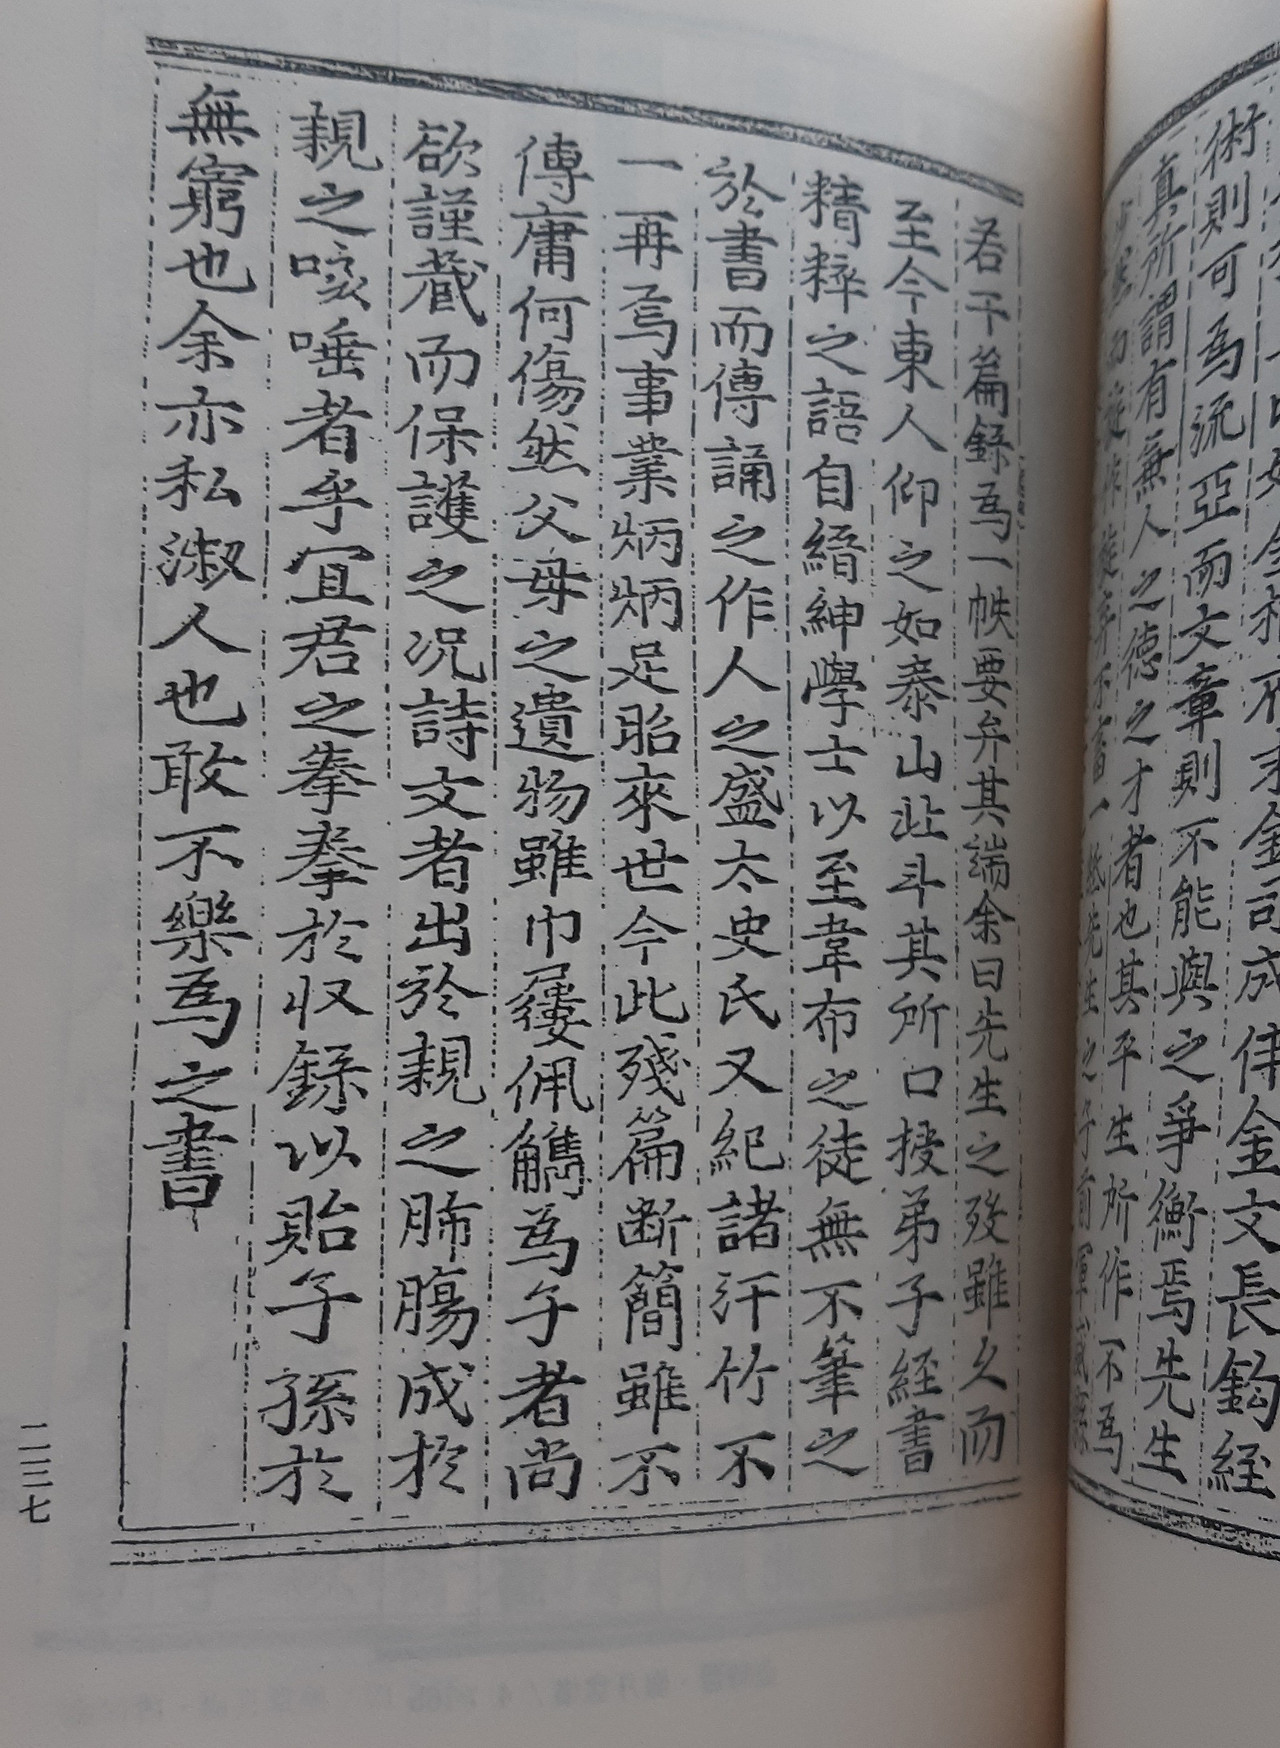 術則可為流亞而文章則不能與之爭衡焉先生
真所謂有無人之德之才者也其平生所作不為
若干篇錄為一帙要弁其端余曰先生之歿雖久而
至今東人仰之如泰山北斗其所口授弟子經書
精粹之語自縉紳學士以至韋布之徒無不筆之
於書而傳誦之作人之盛太史氏又紀諸汗竹不
一再焉事業炳炳足昭來世今此殘篇断簡雖不
傳庸何傷然父母之遺物雖巾屨佩觿為子者尚
欲謹藏而保護之况詩文者出於親之肺腸成於
親之咳唾者乎宜君之拳拳於収錄以貽子孫於
無窮也余亦私淑人也敢不樂為之書
二二三七